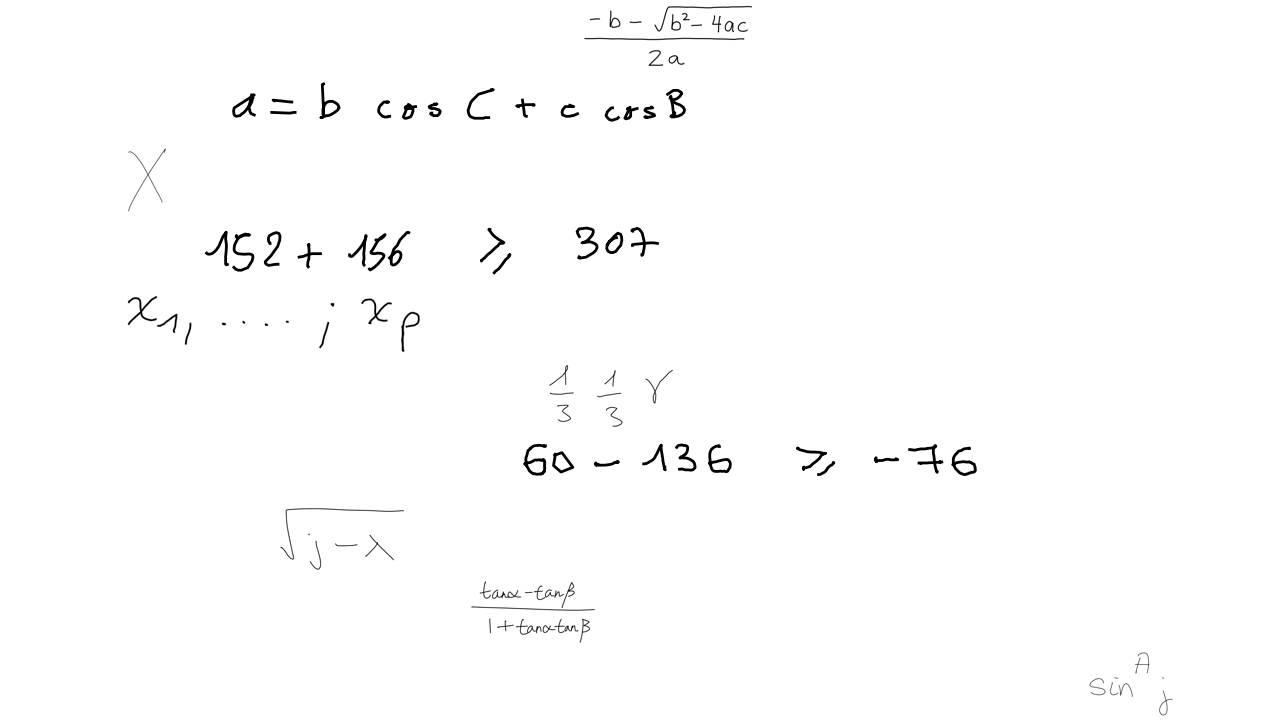 \frac{-b-\sqrt{b^2-4ac}}{2a}
a = b cos C + c cos B
X
152 + 156 ≥ 307
x_1, ...., x_p
\frac{1}{3} \frac{1}{3} γ
60 - 136 ≥ -76
\sqrt{j-λ}
\frac{tanα-tanβ}{1+tanαtanβ}
sin^A j